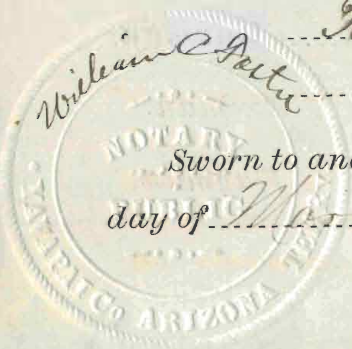 William C Foster
NOTARY
PUBLIC
YAVAPAI Co ARIZONA TERR
Sworn to and
day of